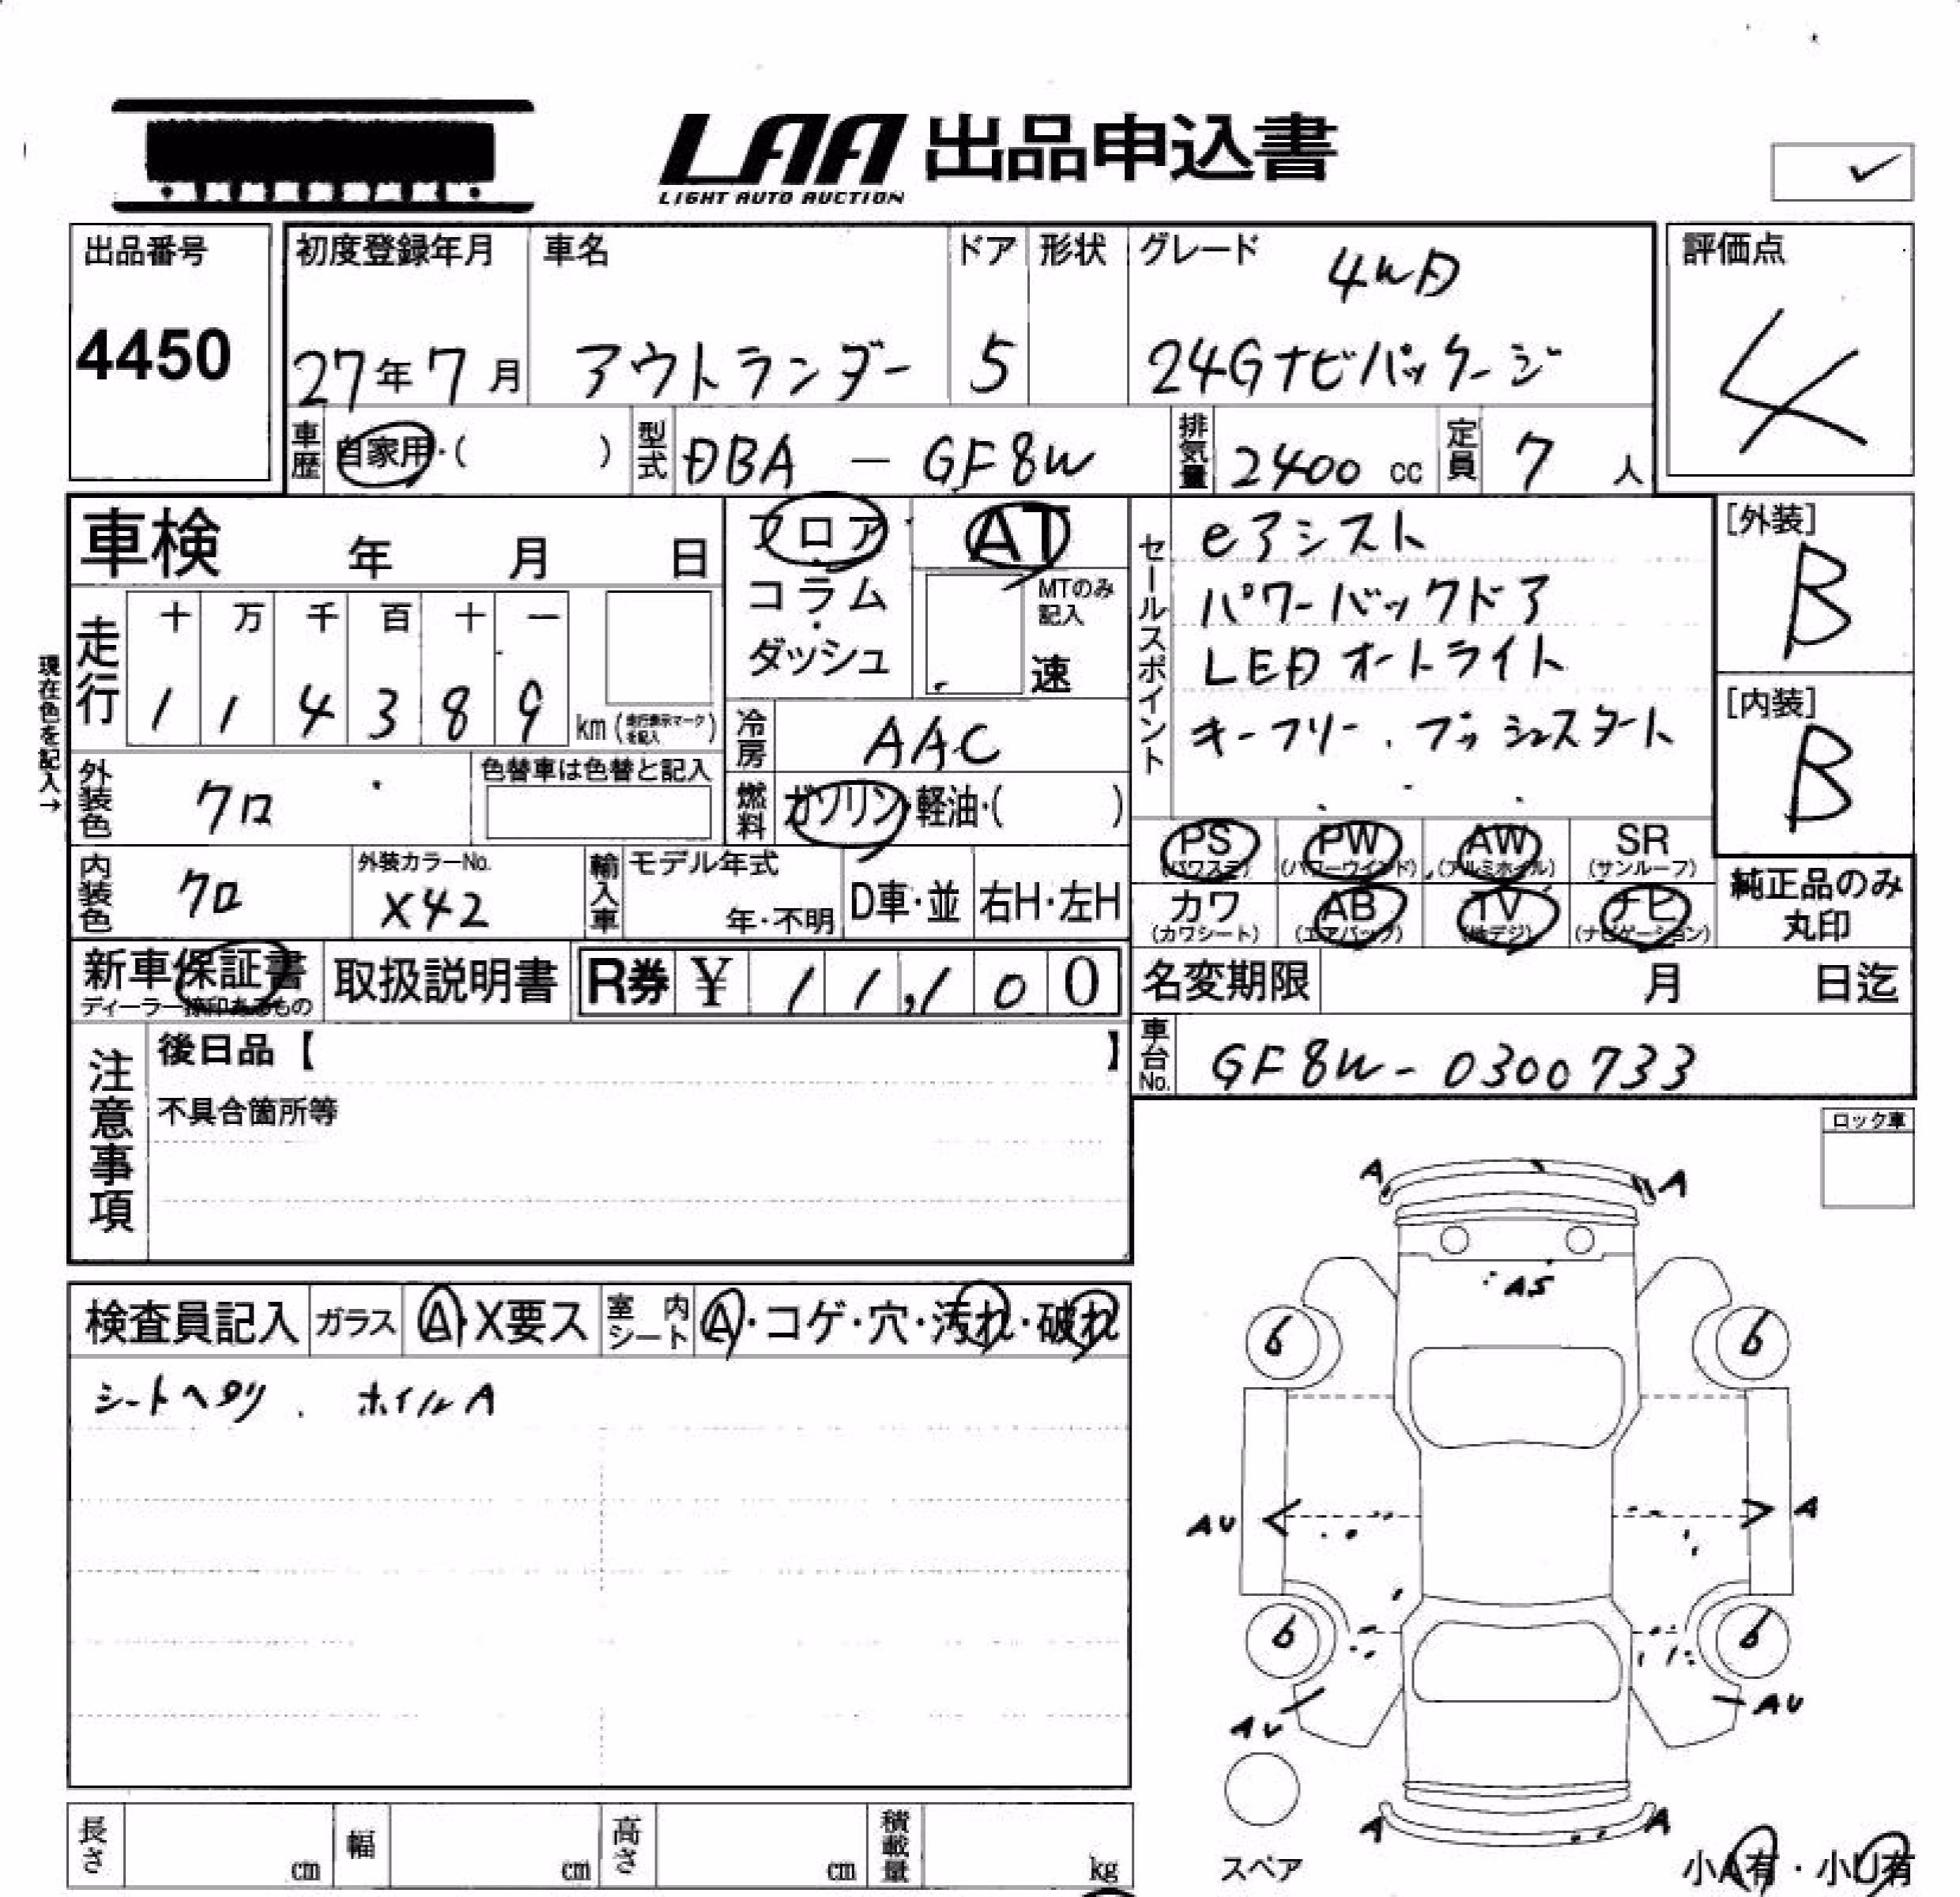 LAA 出品申込書
LIGHT AUTO AUCTION
出品番号
4450
初度登録年月
27年7月
車名
アウトランダー
ドア
5
形状
グレード
4WD
24Gナビパッケージ
評価点
4
車歴 自家用・( )
型式 DBA - GF8W
排気量 2400 cc
定員 7 人
車検 年 月 日
フロア・コラム・ダッシュ
AT
MTのみ記入
速
セールスポイント
eアシスト
パワーバックドア
LEDオートライト
キーフリー、プッシュスタート
[外装]
B
[内装]
B
現在色を記入→
走行
十 万 千 百 十 一
1 1 4 3 8 9 km (走行表示マークを記入)
冷房 AAC
燃料 ガソリン・軽油・( )
外装色 クロ
色替車は色替と記入
内装色 クロ
外装カラーNo.
X42
輸入車
モデル年式
年・不明
D車・並
右H・左H
PS (パワステ)
PW (パワーウインド)
AW (アルミホイル)
SR (サンルーフ)
カワ (カワシート)
AB (エアバック)
TV (地デジ)
ナビ (ナビゲーション)
純正品のみ丸印
新車保証書
ディーラー捺印あるもの
取扱説明書
R券 ¥ 11,100
名変期限 月 日迄
車台No. GF8W-0300733
注意事項
後日品【 】
不具合箇所等
ロック車
検査員記入
ガラス A・X要ス
室内シート A・コゲ・穴・汚れ・破れ
シートヘタリ . ホイルA
A A
AS
6 6
AU A
6 6
AU AU
A A
スペア
小A有・小U有
長さ cm
幅 cm
高さ cm
積載量 kg